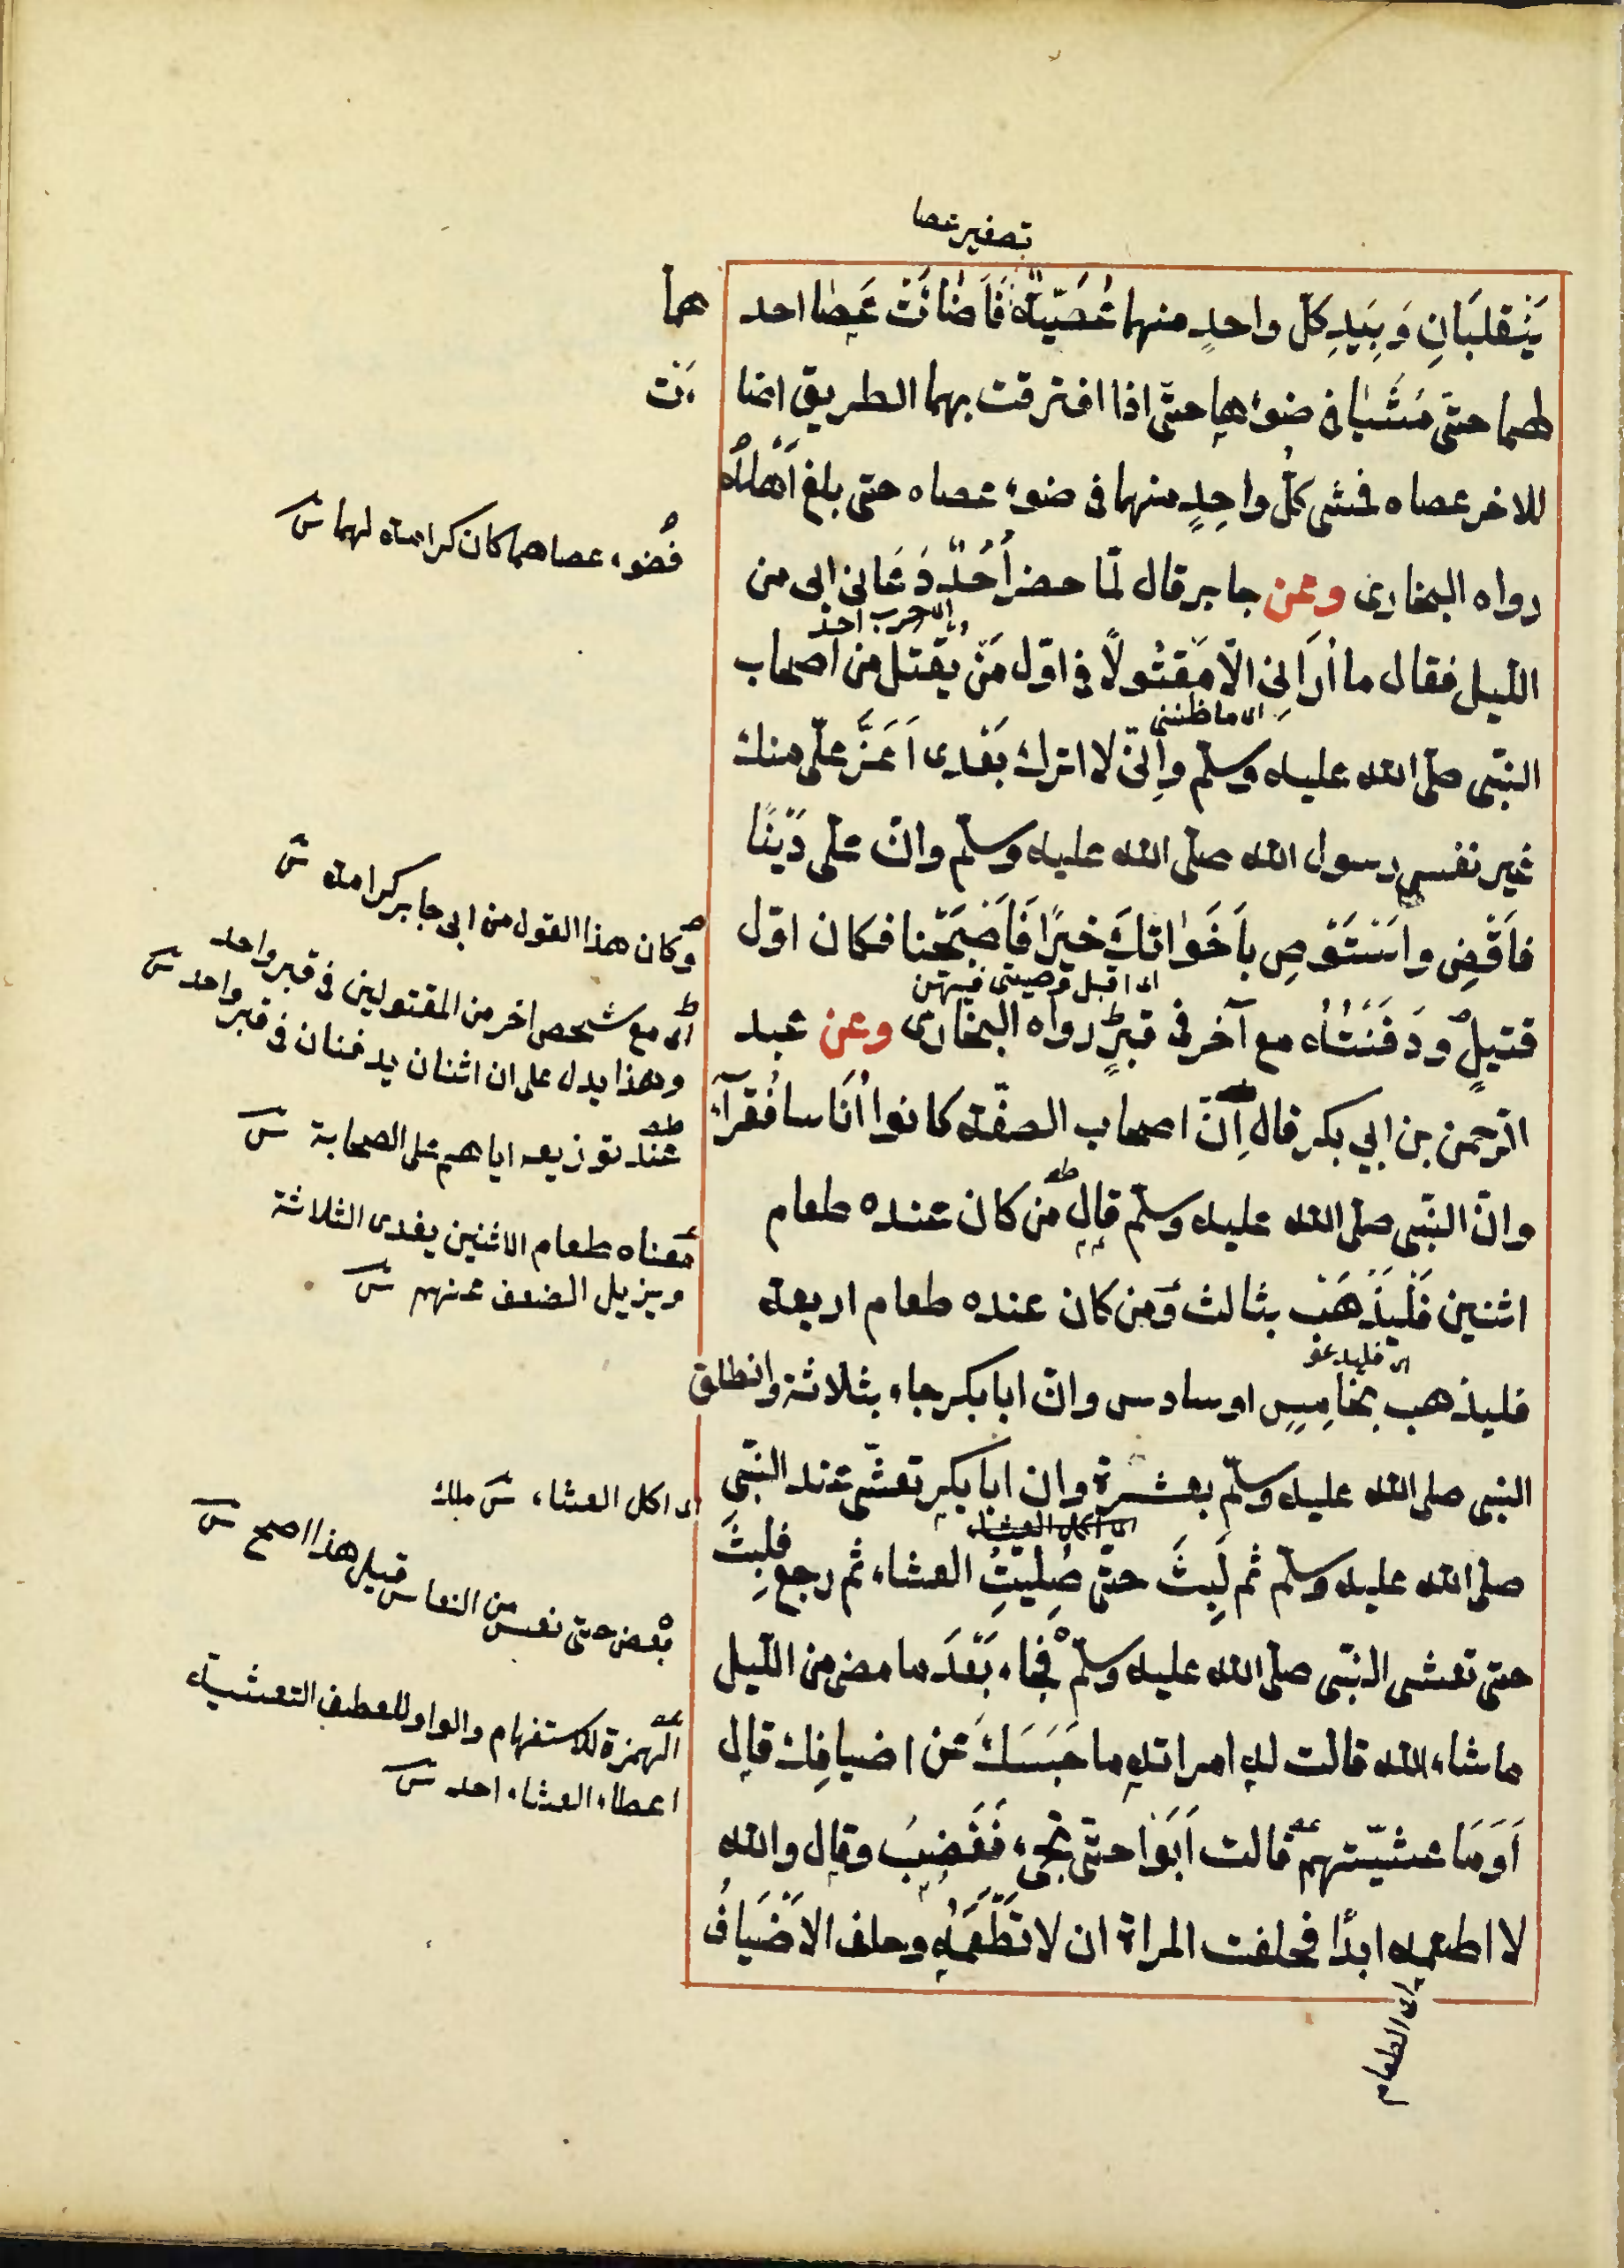 تصغير عصا
يَنْقلبَانِ وَبِيَدِ كلّ واحدٍ منهما عُصَيّةٌ فَاَضَائَتْ عَصٰا احد هما
لهما حتّى مَشَيٰا فى ضوئهما حتّى اذا افترقت بهما الطريق اضا ءَت
للاخر عصاه فمشى كلّ واحِدٍ منهما فى ضوء عصاه حتى بلغ اَهْلَهُ
رواه البخارى وعن جابر قال لمّا حضر اُحُدٌ دَعَانى ابى من
الليل فقال ما اُرَانِى الّا مَقتُولًا فى اوّل مَنْ يقتل من اصحاب
اى ما ظننى
النبّى صلّى الله عليه وسلّم وانّى لا اترك بَعْدى اَعَزَّ علىّ منك
غير نفس رسول الله صلّى الله عليه وسلّم وانّ علىّ دَيْنًا
فاَقْضِ واسْتَوْصِ باَخَوٰاتكَ خيرًا فَاَصْبَحْنا فكان اوّل
اى اقبل وصيتى فيهن
قتيلٍ ودَفَنْتُه مع آخر فى قبرٍ رواه البخارى وعن عبد
الرّحمن بن ابي بكر قال اِنّ اصحاب الصفّة كانوا اُنَاسا فُقَرآء
وانّ النبّى صلى الله عليه وسلّم قال من كان عنده طعام
اثنين فَلْيَذْهَبْ بثالث ومن كان عنده طعام اربعة
اى فليدعو
فليذهب بخامِسٍ او سادس وانّ ابا بكر جاء بثلاثة وانطلق
النبى صلى الله عليه وسلّم بعشرة وان ابا بكر تعشّى عند النبّى
اى اكل العشاء
صلى الله عليه وسلّم ثم لَبِثَ حتّى صُلِيَّتِ العشاء ثم رجع فلبِثَ
حتى تعشى النبّى صلّى الله عليه وسلّم فجاء بَعْدَ ما مضى من الليل
ما شاء الله قالت له امراته ما حَبَسَكَ عَن اضيافِك قال
اَوَمَا عشيّتهم قالت اَبَوْا حتّى تجىء فَغَضِبَ وقال والله
لا اطعمه ابدًا فحلفت المراة ان لا تَطْعَمَه وحلف الاَضْيَافُ
اى الطعام
فضوء عصاهما كان كرامة لهما ش
وكان هذا القول من ابى جابر كرامة ش
اى مع شخص اخر من المقتولين فى قبر واحد
وهذا يدل على ان اثنان يدفنان فى قبر واحد ش
عند توزيعه اياهم على الصحابة ش
معناه طعام الاثنين يغدى الثلاثة
ويزيل الضعف عنهم ش
اى اكل العشاء ش ملك
بعض حتى نعس من النعاس قيل هذا اصح ش
الهمزة للاستفهام والواو للعطف التعشية
اعطاء العشاء احد ش